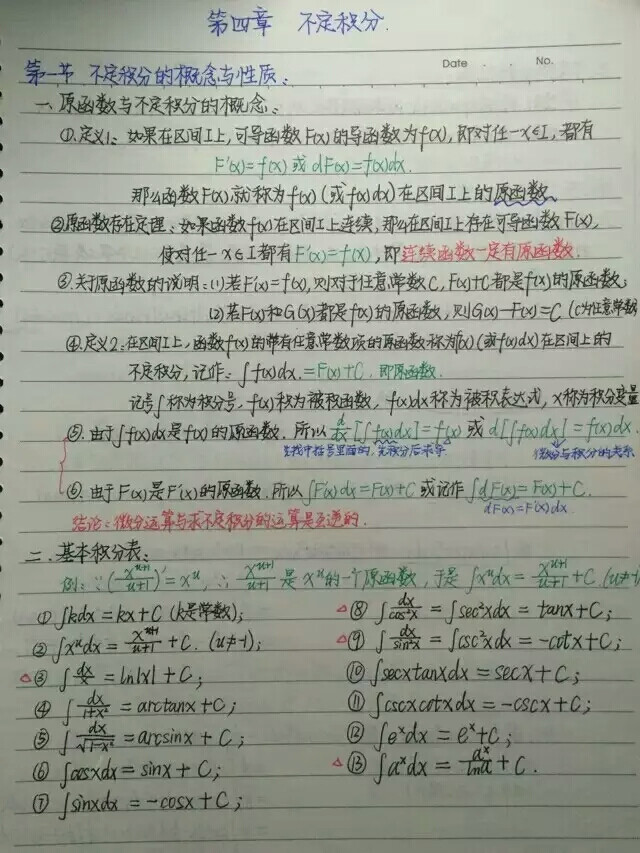 第四章 不定积分.
Date . . No.
第一节 不定积分的概念与性质:
一、原函数与不定积分的概念:
①.定义1: 如果在区间I上,可导函数F(x)的导函数为f(x),即对任一x∈I,都有
F'(x)=f(x) 或 dF(x)=f(x)dx.
那么函数F(x),就称为f(x)(或f(x)dx)在区间I上的原函数
②原函数存在定理: 如果函数f(x)在区间I上连续,那么在区间I上存在可导函数F(x),
使对任一x∈I都有F'(x)=f(x),即连续函数一定有原函数.
③.关于原函数的说明: (1)若F'(x)=f(x),则对于任意常数C,F(x)+C都是f(x)的原函数;
(2)若F(x)和G(x)都是f(x)的原函数,则G(x)-F(x)=C (C为任意常数
④.定义2: 在区间I上,函数f(x)的带有任意常数项的原函数称为f(x)(或f(x)dx)在区间I上的
不定积分,记作: ∫f(x)dx.=F(x)+C.即原函数.
记号∫称为积分号,f(x)积为被积函数,f(x)dx称为被积表达式,x称为积分变量
⑤.由于∫f(x)dx是f(x)的原函数.所以 d/dx[∫f(x)dx]=f(x) 或 d[∫f(x)dx]=f(x)dx.
先找中括号里面的,先积分后求导 微分与积分的关系
⑥.由于F(x)是F'(x)的原函数.所以∫F'(x)dx=F(x)+C 或记作∫dF(x)=F(x)+C.
dF(x)=F'(x)dx.
结论:微分运算与求不定积分的运算是互逆的.
二.基本积分表:
例:∵(x^(u+1)/(u+1))'=x^u,∴ x^(u+1)/(u+1) 是x^u的一个原函数,于是∫x^u dx=x^(u+1)/(u+1)+C.(u≠-1
①∫kdx=kx+C(k是常数);
②∫x^u dx=x^(u+1)/(u+1)+C.(u≠-1);
△③∫dx/x=ln|x|+C;
④∫dx/(1+x²)=arctanx+C;
⑤∫dx/√(1-x²)=arcsinx+C;
⑥∫cosxdx=sinx+C;
⑦∫sinxdx=-cosx+C;
△⑧∫dx/cos²x=∫sec²xdx=tanx+C;
△⑨∫dx/sin²x=∫csc²xdx=-cotx+C;
⑩∫secxtanxdx=secx+C;
⑪∫cscxcotxdx=-cscx+C;
⑫∫e^x dx=e^x+C;
△⑬∫a^x dx=a^x/lna+C.